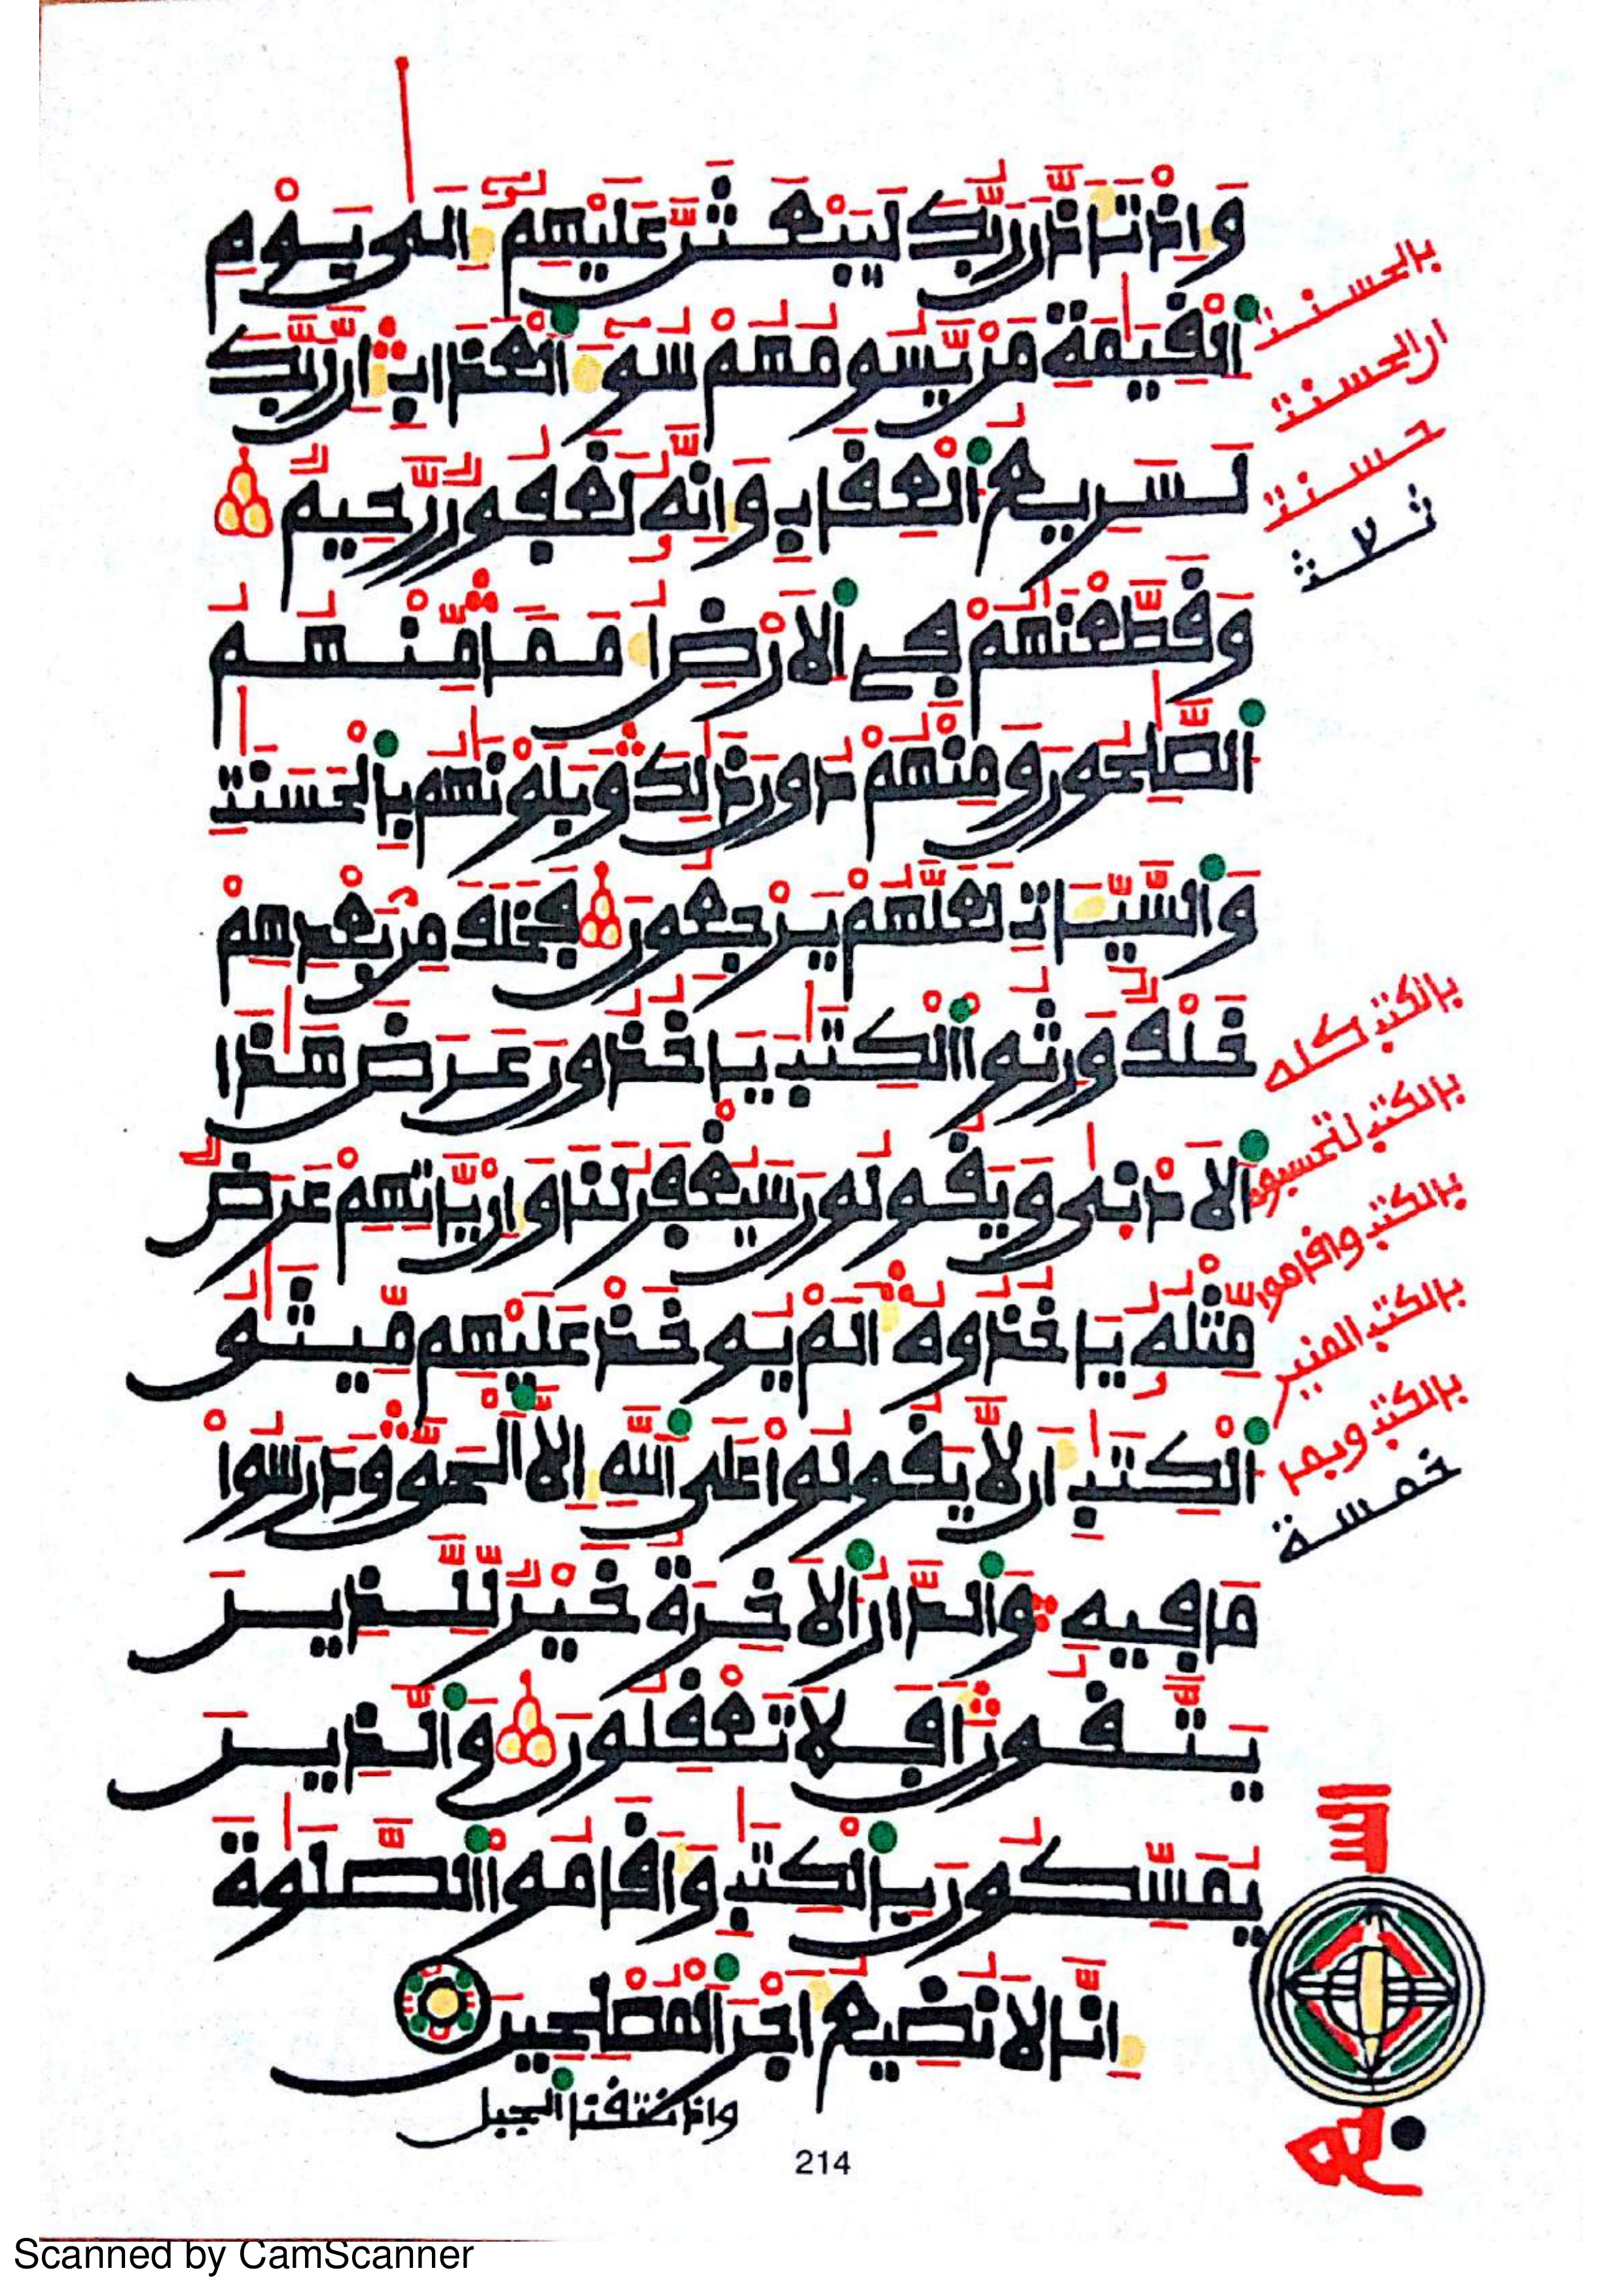 وَإِذْ تَأَذَّنَ رَبُّكَ لَيَبْعَثَنَّ عَلَيْهِمُۥٓ إِلَىٰ يَوْمِ
اِ۬لْقِيَٰمَةِ مَنْ يَّسُومُهُمْ سُوٓءَ اَ۬لْعَذَابِۖ إِنَّ رَبَّكَ
لَسَرِيعُ اُ۬لْعِقَابِ وَإِنَّهُۥ لَغَفُورٌ رَّحِيمٌ
وَقَطَّعْنَٰهُمْ فِے اِ۬لَارْضِ أُمَماً مِّنْهُمُ
اُ۬لصَّٰلِحُونَ وَمِنْهُمْ دُونَ ذَٰلِكَۖ وَبَلَوْنَٰهُم بِالْحَسَنَٰتِ
وَالسَّيِّـَٔاتِ لَعَلَّهُمْ يَرْجِعُونَ فَخَلَفَ مِنۢ بَعْدِهِمْ
خَلْفٌ وَرِثُواْ اُ۬لْكِتَٰبَ يَاخُذُونَ عَرَضَ هَٰذَا
اَ۬لَادْنَىٰ وَيَقُولُونَ سَيُغْفَرُ لَنَا وَإِنْ يَّاتِهِمْ عَرَضٌ
مِّثْلُهُۥ يَاخُذُوهُۖ أَلَمْ يُوخَذْ عَلَيْهِم مِّيثَٰقُ
اُ۬لْكِتَٰبِ أَن لَّا يَقُولُواْ عَلَى اَ۬للَّهِ إِلَّا اَ۬لْحَقَّۖ وَدَرَسُواْ
مَا فِيهِۖ وَالدَّارُ اُ۬لَاخِرَةُ خَيْرٌ لِّلَّذِينَ
يَتَّقُونَۖ أَفَلَا تَعْقِلُونَ وَالَّذِينَ
يُمَسِّكُونَ بِالْكِتَٰبِ وَأَقَامُواْ اُ۬لصَّلَوٰةَ
إِنَّا لَا نُضِيعُ أَجْرَ اَ۬لْمُصْلِحِينَ
وإذ نتقنا الجبل
بالحسنت
ان الحسنت
حسنت
كله
بالكتب
بالكتب لتحسبوه
بالكتب وأقاموا
بالكتب المنير
بالكتب ويمر
خمسة
214
Scanned by CamScanner